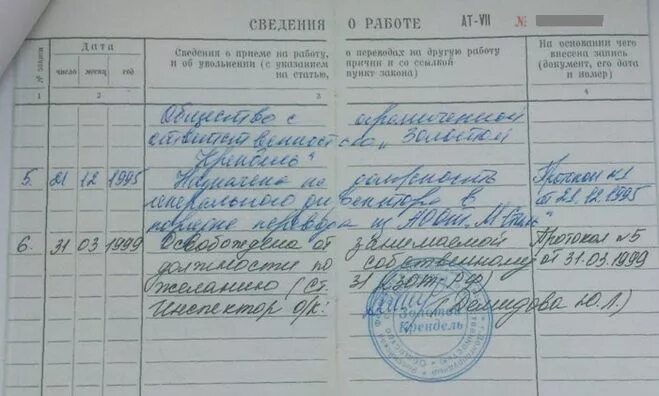 СВЕДЕНИЯ О РАБОТЕ АТ-VII №
№ записи
Дата
число месяц год
Сведения о приеме на работу, о переводах на другую работу
и об увольнении (с указанием причин и со ссылкой
на статью, пункт закона)
На основании чего
внесена запись
(документ, его дата
и номер)
1 2 3 4
Общество с ограниченной
ответственностью „Золотой
Крендель"
5. 21 12 1995 Назначена на должность Протокол №1
генерального директора в от 21.12.1995
порядке перевода из
6. 31 03 1999 Освобождена от занимаемой Протокол №5
должности по собственному от 31.03.1999
желанию (ст. 31 КЗОТ РФ)
Инспектор о/к: (Демидова Ю.Л.)
Золотой
Крендель